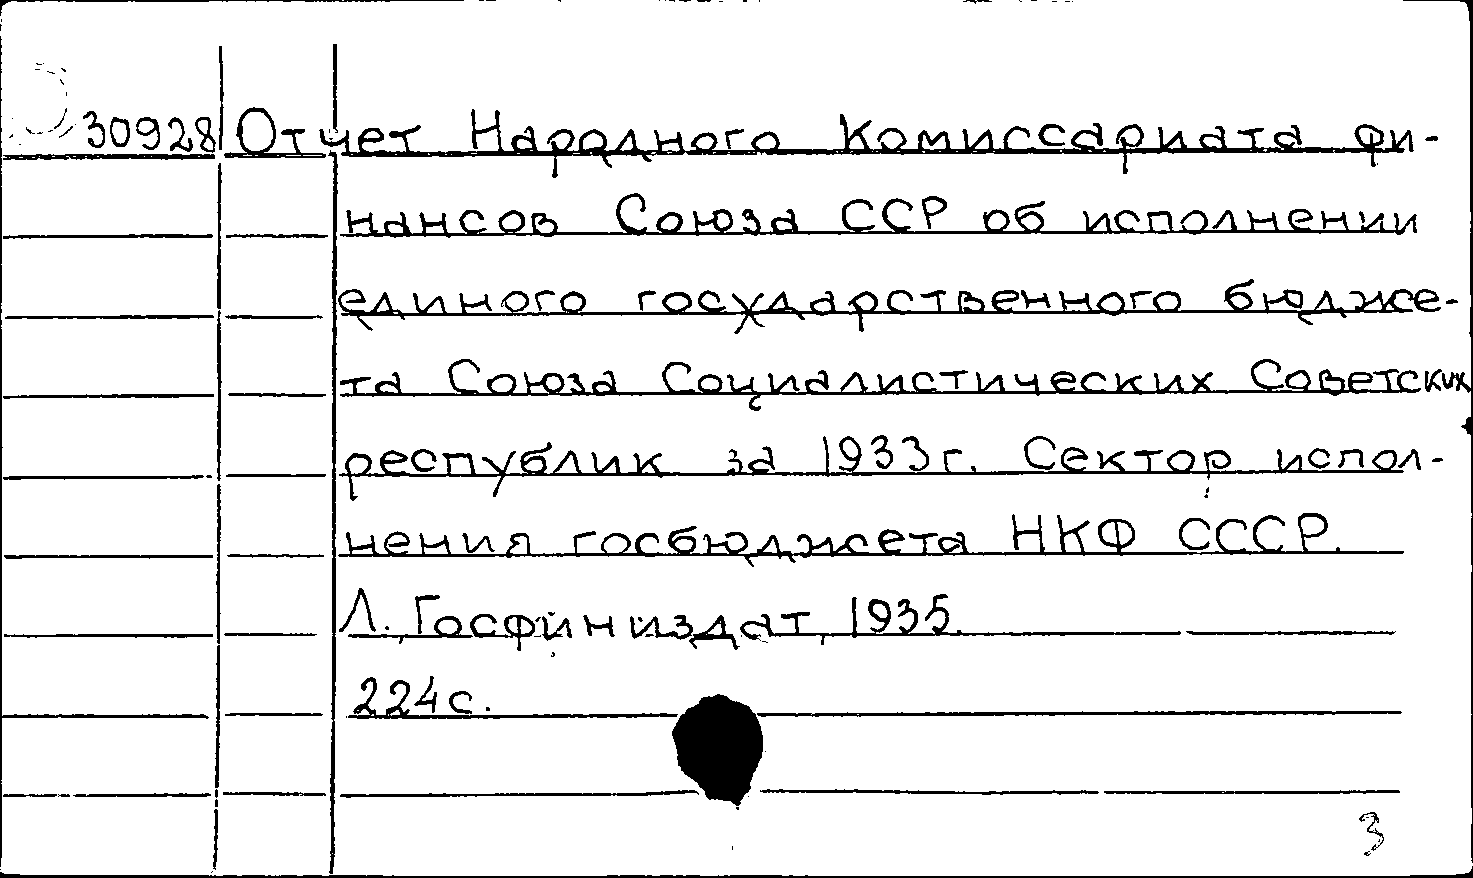 30928 Отчет Народного Комиссариата фи-
нансов Союза ССР об исполнении
единого государственного бюдже-
та Союза Социалистических Советских
республик за 1933г. Сектор испол-
нения госбюджета НКФ СССР.
Л., Госфиниздат, 1935.
224с.
3